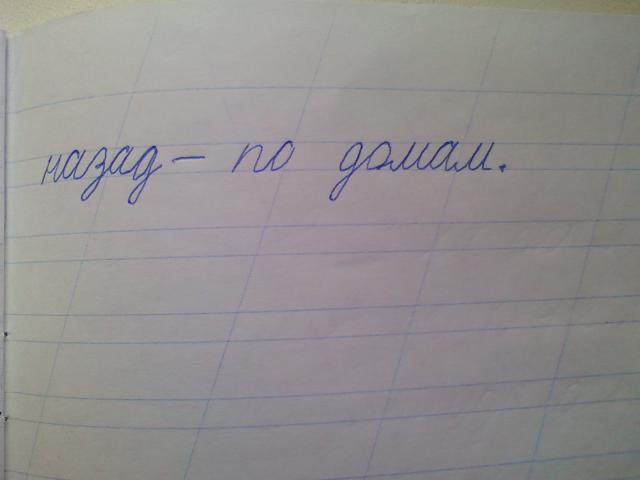 назад – по домам.